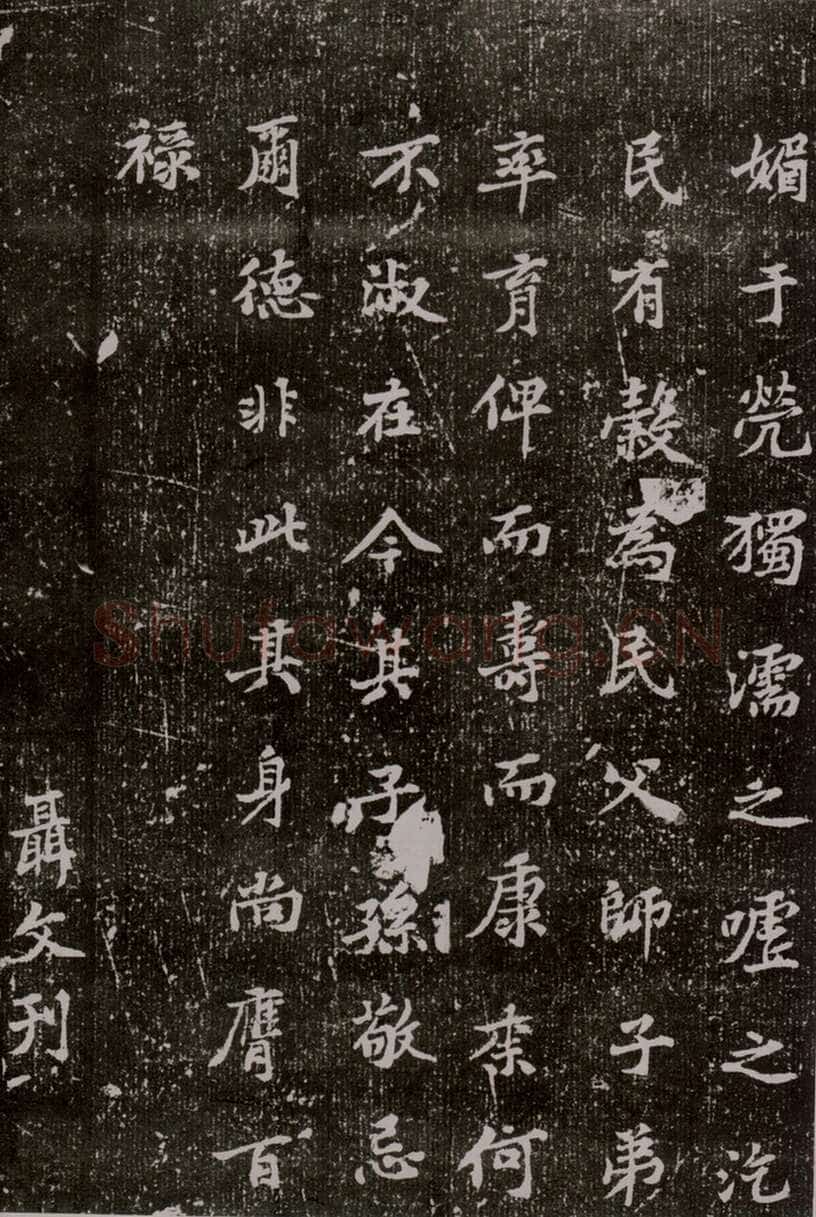 媚于㷀獨濡之嘘之汔
民有穀為民父師子弟
率育俾而壽而康柰何
不淑在今其子孫敬忌
爾德非此其身尚膺百
禄
聶文刊
Shufawang.CN